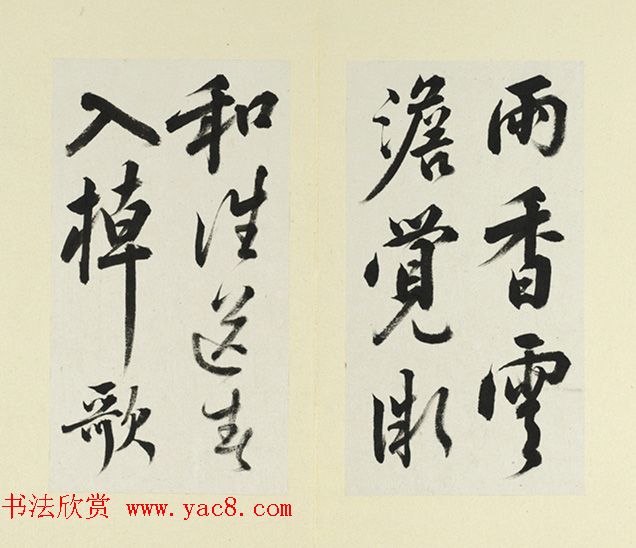 雨香雲
澹覺微
和誰送春
入棹歌
书法欣赏 www.yac8.com